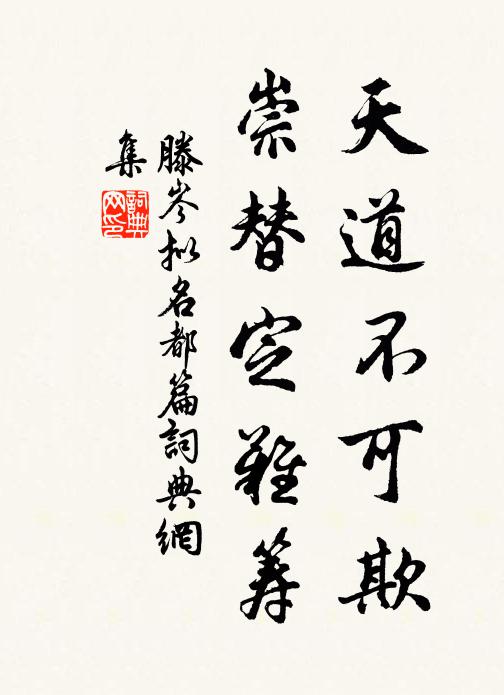 天道不可欺
崇替定難筹
滕岑拟名都篇詞典網
集
詞典
网印